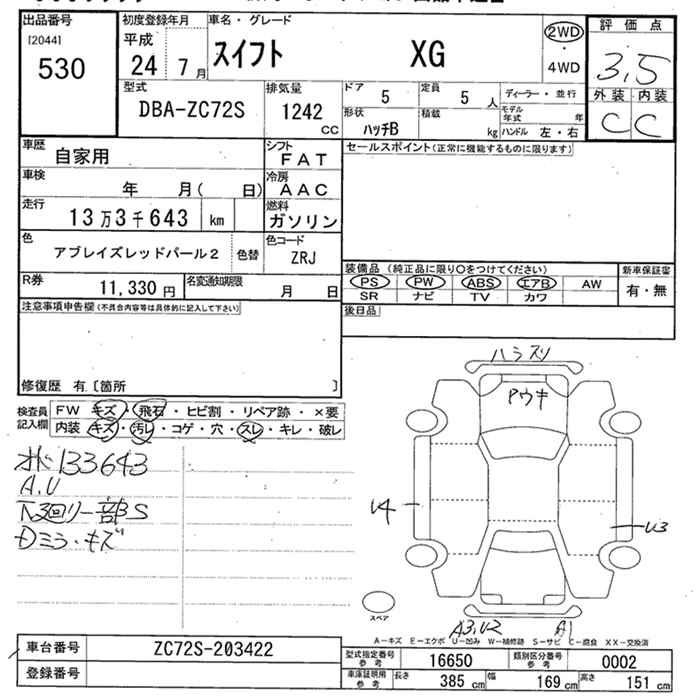 出品番号
[2044]
530
初度登録年月
平成
24 7 月
車名・グレード
スイフト XG
2WD
・
4WD
評価点
3,5
外装 内装
C C
型式
DBA-ZC72S
排気量
1242
CC
ドア
5
定員
5 人
ディーラー・並行
形状
ハッチB
積載
kg
モデル年式 年
ハンドル 左・右
車歴
自家用
シフト
FAT
セールスポイント(正常に機能するものに限ります)
車検
年 月( 日)
冷房
AAC
走行
13万3千643 km
燃料
ガソリン
色
アブレイズレッドパール2
色替
色コード
ZRJ
R券
11,330 円
名変通知期限
月 日
装備品 (純正品に限り〇をつけてください)
PS PW ABS エアB AW
SR ナビ TV カワ
新車保証書
有・無
後日品
注意事項申告欄(不具合内容等は具体的に記入して下さい)
修復歴 有〔箇所 〕
検査員
記入欄
FW キズ・飛石・ヒビ割・リペア跡・×要
内装 キズ・汚レ・コゲ・穴・スレ・キレ・破レ
133643
A,U
下廻リ一部S
Dミラ・キズ
ハラスリ
アウキ
U4
U3
スペア
A3,U2
A1
A-キズ E-エクボ U-凹み W-補修跡 S-サビ C-腐食 XX-交換済
車台番号
ZC72S-203422
登録番号
型式指定番号
参考
16650
類別区分番号
参考
0002
車庫証明用
参考
長さ
385 cm
幅
169 cm
高さ
151 cm